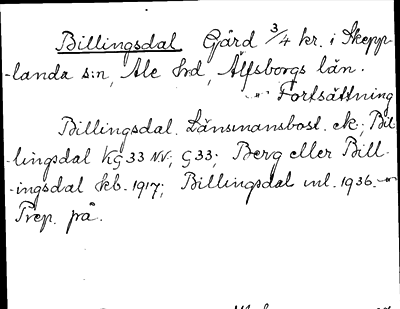 Billingsdal Gård 3/4 kr. i Skepp-
-landa s:n, Ale hrd, Älfsborgs län.
Fortsättning
Billingsdal. Länsmansbost. ek.; Bil-
-lingsdal KG 33 NV; G 33; Berg eller Bill-
-ingsdal Jkb. 1917; Billingsdal ml. 1936.
Prep. på.